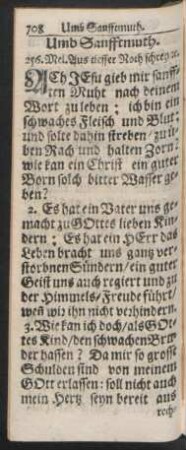 708 Umb Sanfftmuth.
Umb Sanfftmuth.
256. Mel. Aus tieffer Noth schrey ꝛc.
ACh JEsu gieb mir sanff-
ten Muht nach deinem
Wort zu leben; ich bin ein
schwaches Fleisch und Blut;
und solte dahin streben/ zu ü-
ben Rach und halten Zorn?
wie kan ein Christ ein guter
Born solch bitter Wasser ge-
ben?
2. Es hat ein Vater uns ge-
macht zu GOttes lieben Kin-
dern; Es hat ein HErr das
Leben bracht uns gantz ver-
storbnen Sündern/ ein guter
Geist uns auch regiert und zu
der Himmels-Freude führt/
weñ wir ihn nicht verhindern.
3. Wie kan ich doch/ als GOt-
tes Kind/ den schwachen Bru-
der hassen? Da mir so grosse
Schulden sind von meinem
GOtt erlassen: soll nicht auch
mein Hertz seyn bereit aus